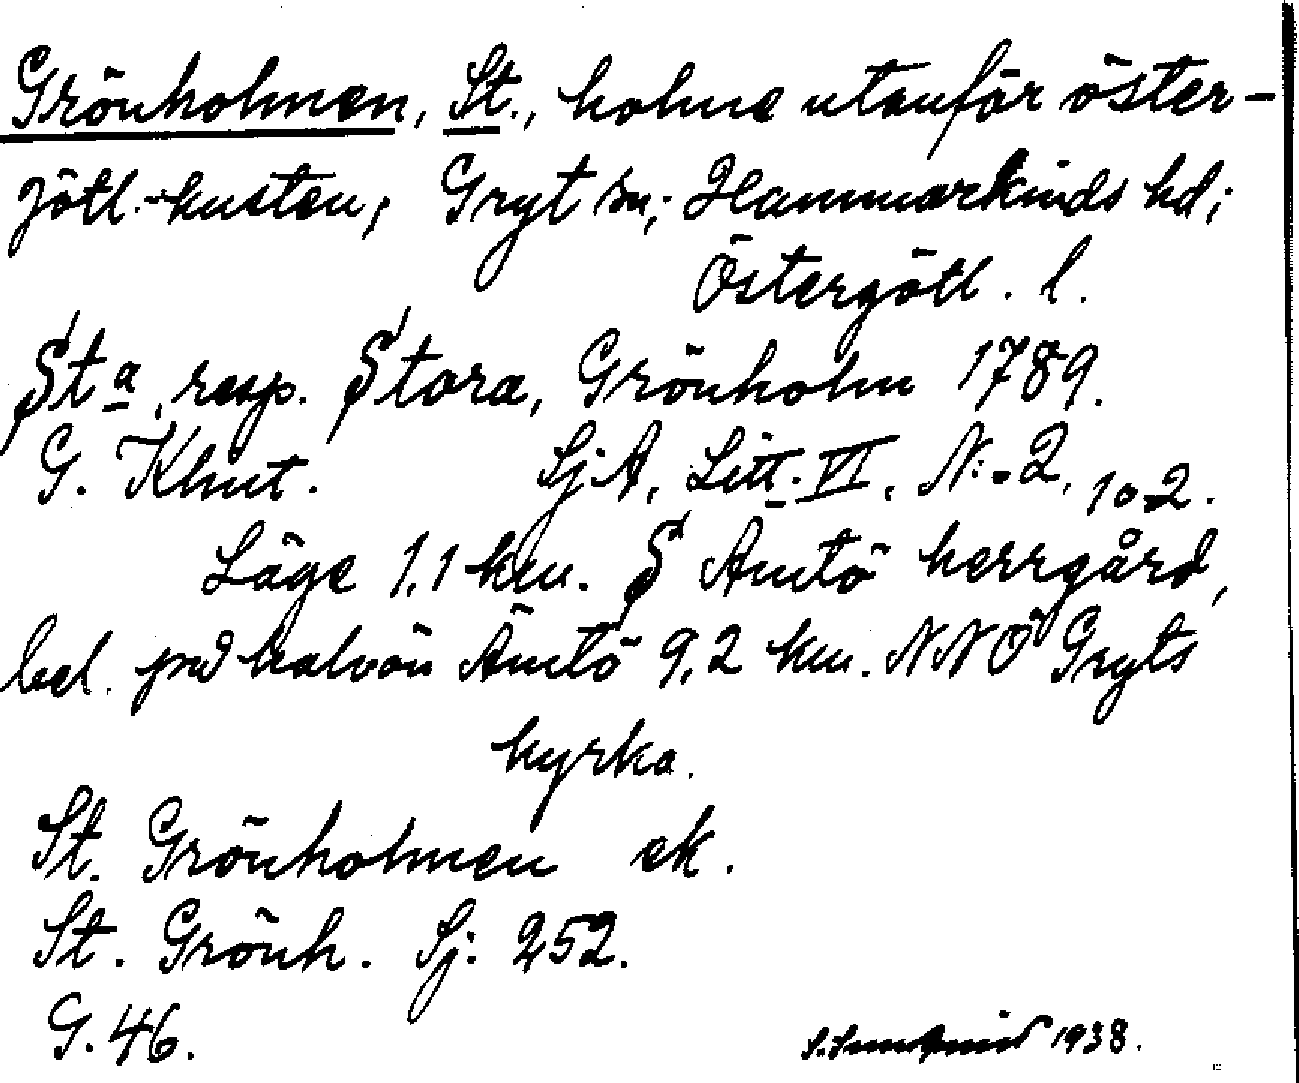 Grönholmen, St., holme utanför öster-
götl.-kusten; Gryt sn; Hammarkinds hd;
Östergötl. l.
Sta, resp. Stora, Grönholm 1789.
G. Klint. SjA, Litt. VI, N:o 2, 102.
Läge 1,1 km. S Ämtö herrgård,
bel. på halvön Ämtö 9,2 km. NNÖ Gryts
kyrka.
St. Grönholmen ek.
St. Grönh. Sj. 252.
G. 46.
1938.